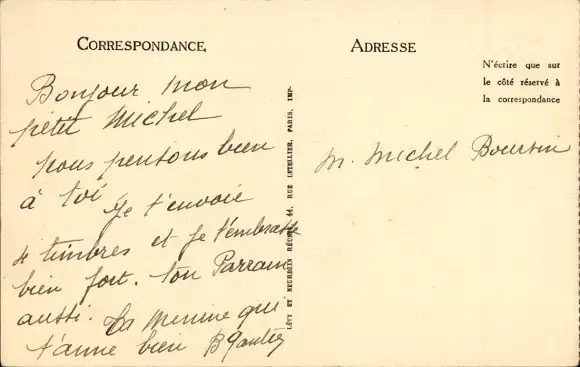 CORRESPONDANCE
ADRESSE
N'écrire que sur
le côté réservé à
la correspondance
Bonjour mon
petit Michel
nous pensons bien
à toi je t'envoie
4 timbres et je t'embrasse
bien fort. ton Parrain
aussi. La Menine qui
t'aime bien B Gautier
M. Michel Boursin
LÉVY ET NEURDEIN RÉUNIS, 44, RUE LETELLIER, PARIS, IMP.